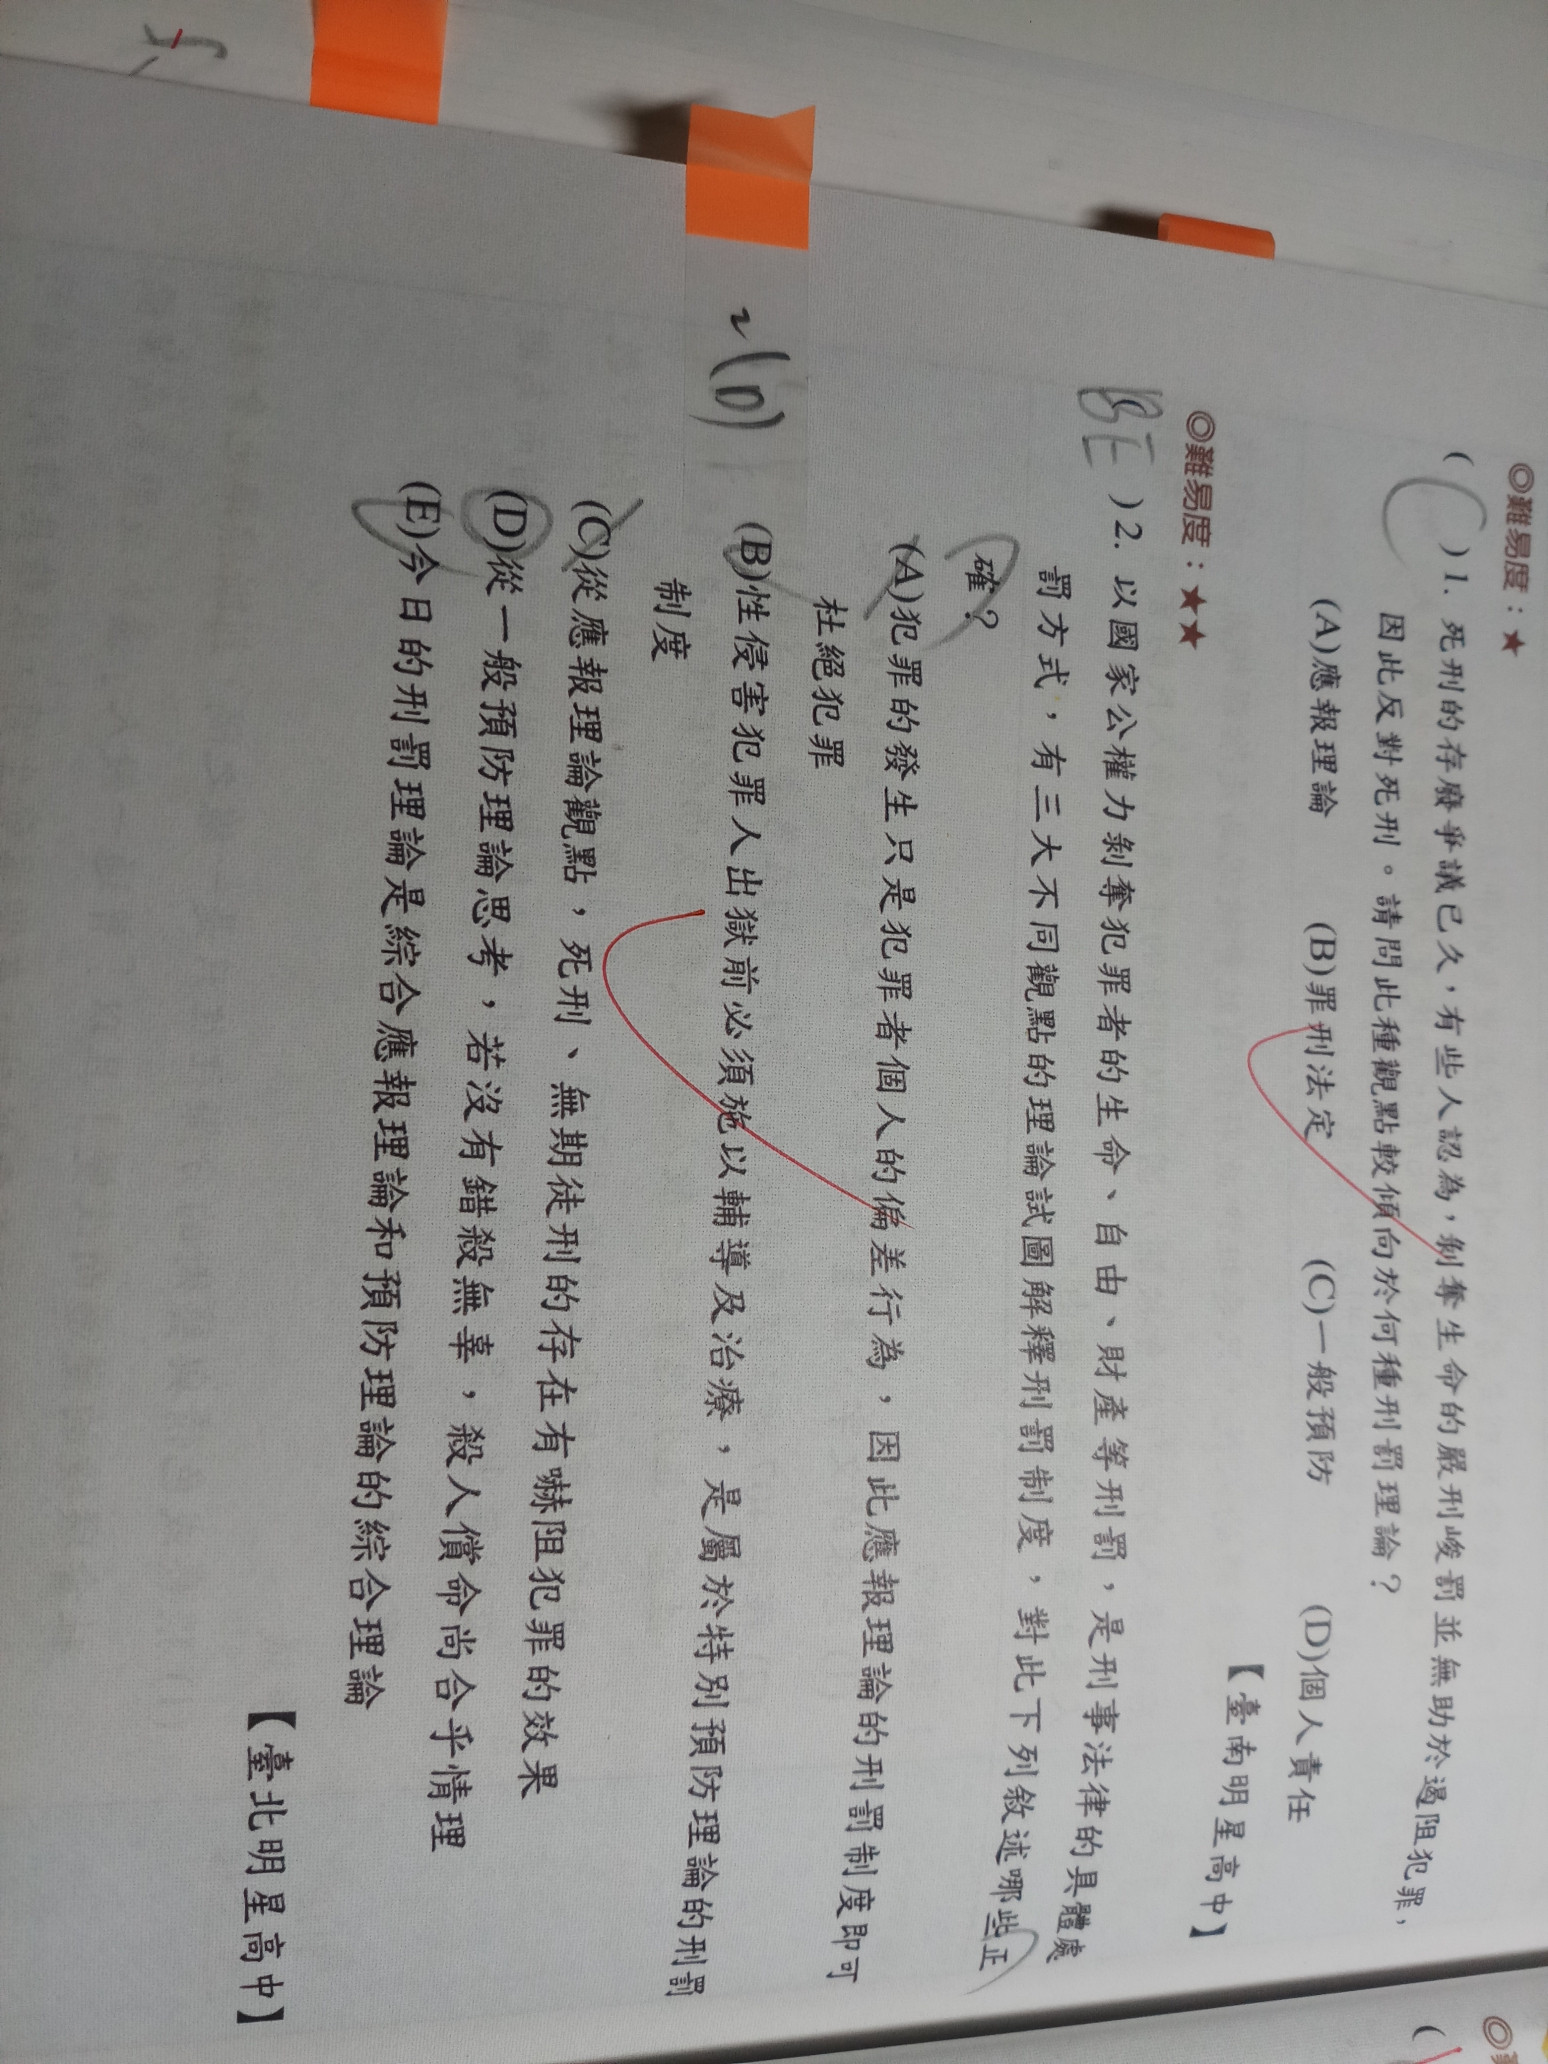 ◎難易度：★
( C )1. 死刑的存廢爭議已久，有些人認為，剝奪生命的嚴刑峻罰並無助於遏阻犯罪，
因此反對死刑。請問此種觀點較傾向於何種刑罰理論？
(A)應報理論 (B)罪刑法定 (C)一般預防 (D)個人責任
【臺南明星高中】
◎難易度：★★
( BE )2. 以國家公權力剝奪犯罪者的生命、自由、財產等刑罰，是刑事法律的具體處
罰方式，有三大不同觀點的理論試圖解釋刑罰制度，對此下列敘述哪些正
確？
(A)犯罪的發生只是犯罪者個人的偏差行為，因此應報理論的刑罰制度即可
杜絕犯罪
(B)性侵害犯罪人出獄前必須施以輔導及治療，是屬於特別預防理論的刑罰
制度
(C)從應報理論觀點，死刑、無期徒刑的存在有嚇阻犯罪的效果
(D)從一般預防理論思考，若沒有錯殺無辜，殺人償命尚合乎情理
(E)今日的刑罰理論是綜合應報理論和預防理論的綜合理論
【臺北明星高中】
2(D)